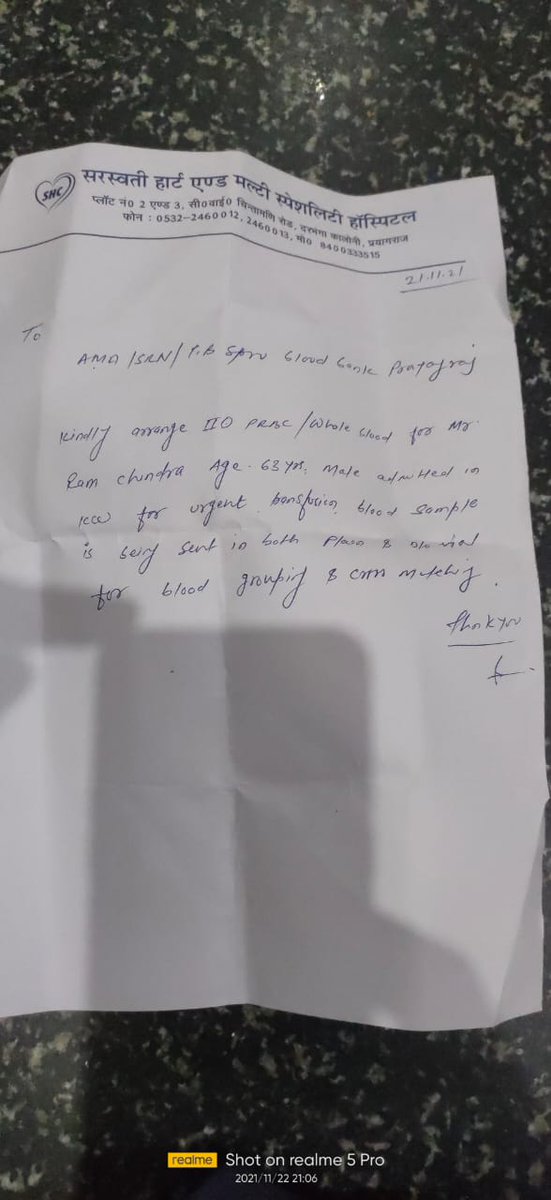 SHC
सरस्वती हार्ट एण्ड मल्टी स्पेशलिटी हॉस्पिटल
प्लॉट नं0 2 एण्ड 3, सी0वाई0 चिन्तामणि रोड, दरभंगा कालोनी, प्रयागराज
फोन : 0532-2460012, 2460013, मो0 8400333515
21.11.21
To
AMA/SRN/ blood bank Prayagraj
Kindly arrange PRBC/Whole blood for Mr.
Ram Chandra Age. 63 yrs. Male admitted in
for urgent blood sample
is being sent in both Plain & vial
for blood grouping & matching.
Thank you
realme Shot on realme 5 Pro
2021/11/22 21:06